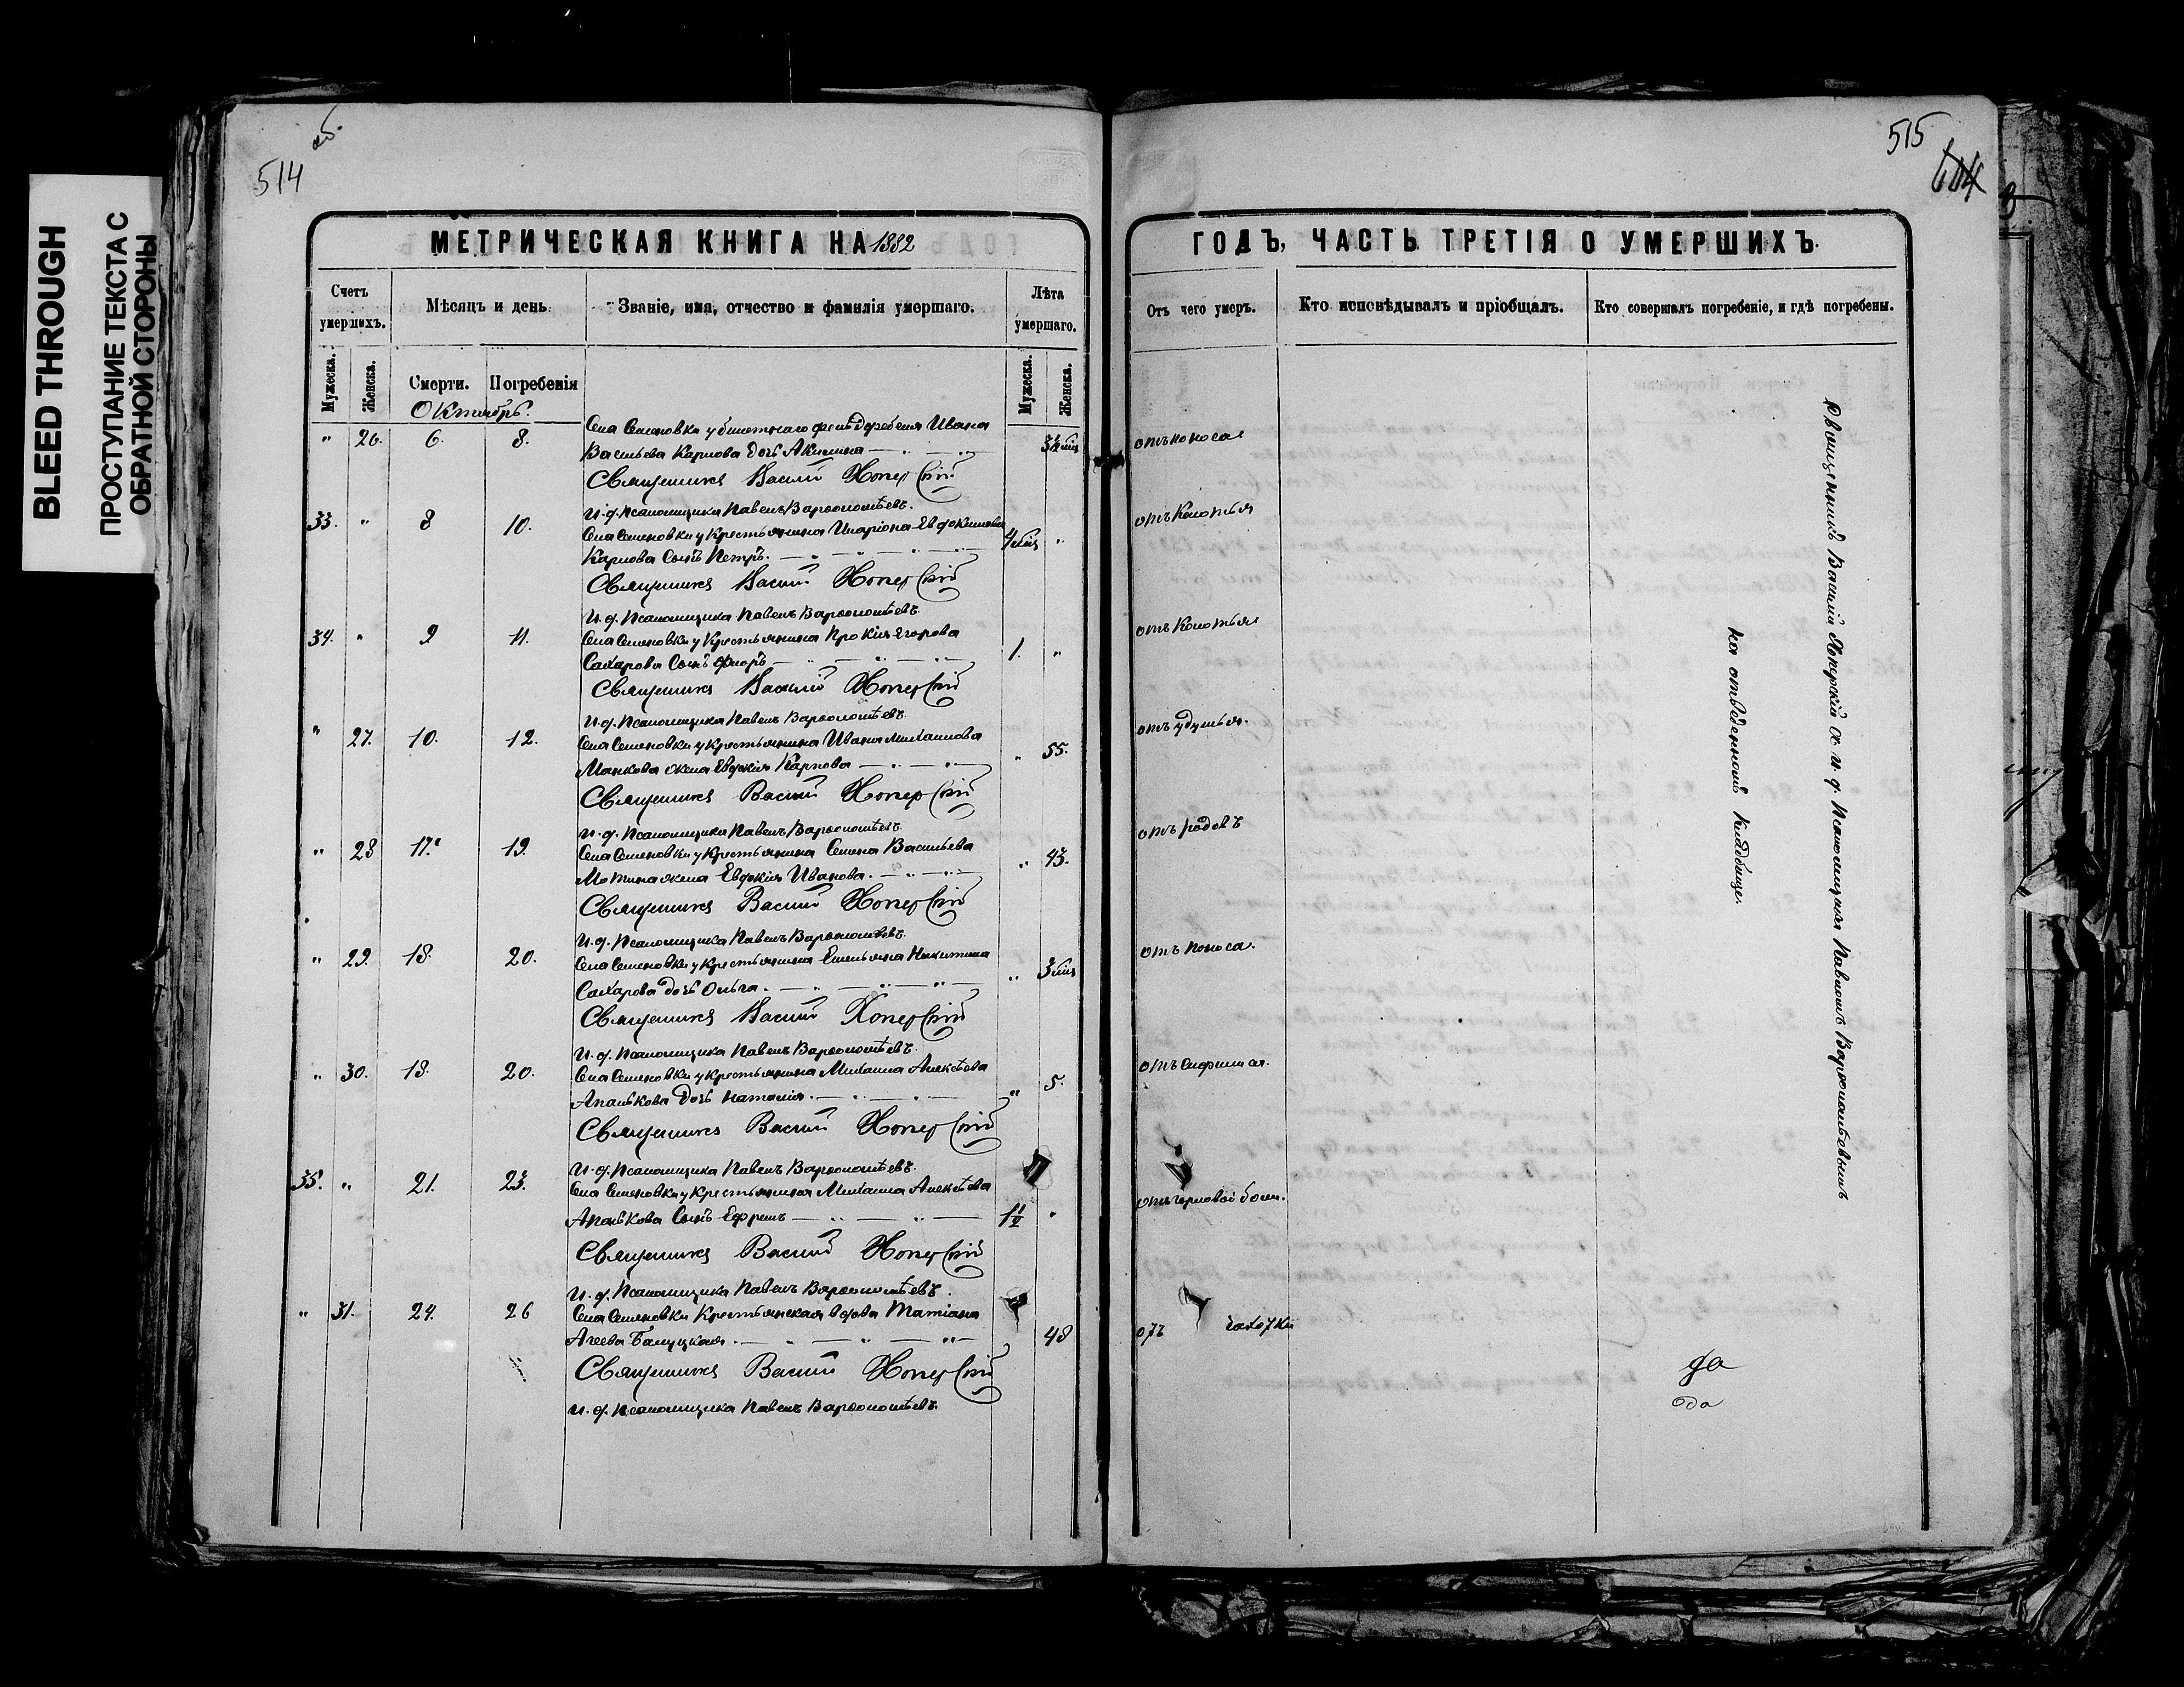 BLEED THROUGH
ПРОСТУПАНИЕ ТЕКСТА С
ОБРАТНОЙ СТОРОНЫ
об.
514
МЕТРИЧЕСКАЯ КНИГА НА 1882
Счетъ умершихъ.
Мѣсяцъ и день
Званіе, имя, отчество и фамилія умершаго.
Лѣта умершаго.
Мужеска.
Женска.
Смерти.
Погребенія
Мужеска.
Женска.
Октябрь.
" 26. 6. 8. Села Семеновки у Ивана
Васильева Карпова дочь Акилина
Священникъ Василій Хоперскій
И. д. Псаломщика Павелъ Варѳоломѣевъ.
33. " 8 10. Села Семеновки у Крестьянина Иларіона Евдокимова 4 "
Карпова сынъ Петръ.
Священникъ Василій Хоперскій
И. д. Псаломщика Павелъ Варѳоломѣевъ.
34. " 9 11. Села Семеновки у Крестьянина Прокія Егорова
Сахарова сынъ Ѳеодръ 1. "
Священникъ Василій Хоперскій
И. д. Псаломщика Павелъ Варѳоломѣевъ.
" 27. 10. 12. Села Семеновки у крестьянина Ивана Михаилова " 55.
Манкова жена Евдокія Карпова
Священникъ Василій Хоперскій
И. д. Псаломщика Павелъ Варѳоломѣевъ.
" 28 17. 19. Села Семеновки у Крестьянина Семена Васильева " 43.
Мотина жена Евдокія Иванова.
Священникъ Василій Хоперскій
И. д. Псаломщика Павелъ Варѳоломѣевъ.
" 29. 18. 20. Села Семеновки у крестьянина Емельяна Никитина " 3
Сахарова дочь Ольга.
Священникъ Василій Хоперскій
И. д. Псаломщика Павелъ Варѳоломѣевъ.
" 30. 18. 20. Села Семеновки у крестьянина Михаила Алексѣева " 5.
Апалькова дочь Наталія.
Священникъ Василій Хоперскій
И. д. Псаломщика Павелъ Варѳоломѣевъ.
35. " 21. 23. Села Семеновки у Крестьянина Михаила Алексѣева
Апалькова сынъ Ефремъ "
Священникъ Василій Хоперскій
И. д. Псаломщика Павелъ Варѳоломѣевъ.
" 31. 24. 26 Села Семеновки Крестьянская вдова Татіана
Агеева 48
Священникъ Василій Хоперскій
И. д. Псаломщика Павелъ Варѳоломѣевъ.
515
ГОДЪ, ЧАСТЬ ТРЕТІЯ О УМЕРШИХЪ.
Отъ чего умеръ.
Кто исповѣдывалъ и пріобщалъ.
Кто совершалъ погребеніе, и гдѣ погребены.
отъ поноса
отъ Колотья
отъ Колотья
отъ удушья.
отъ родовъ
отъ поноса.
отъ горловой боли.
отъ чахотки
Священникъ Василій Хоперскій съ и. д. Псаломщика Павломъ Варѳоломѣевымъ
на отведенномъ кладбище.